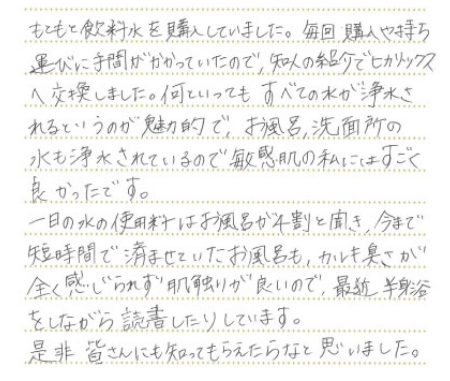 もともと飲料水を購入していました。毎回購入や持ち
運びに手間がかかっていたので、知人の紹介でヒカリックス
へ交換しました。何といってもすべての水が浄水さ
れるというのが魅力的で、お風呂、洗面所の
水も浄水されているので敏感肌の私にはすごく
良かったです。
一日の水の使用料はお風呂が4割と聞き、今まで
短時間で済ませていたお風呂も、カルキ臭さが
全く感じられず肌触りが良いので、最近半身浴
をしながら読書したりしています。
是非皆さんにも知ってもらえたらなと思いました。